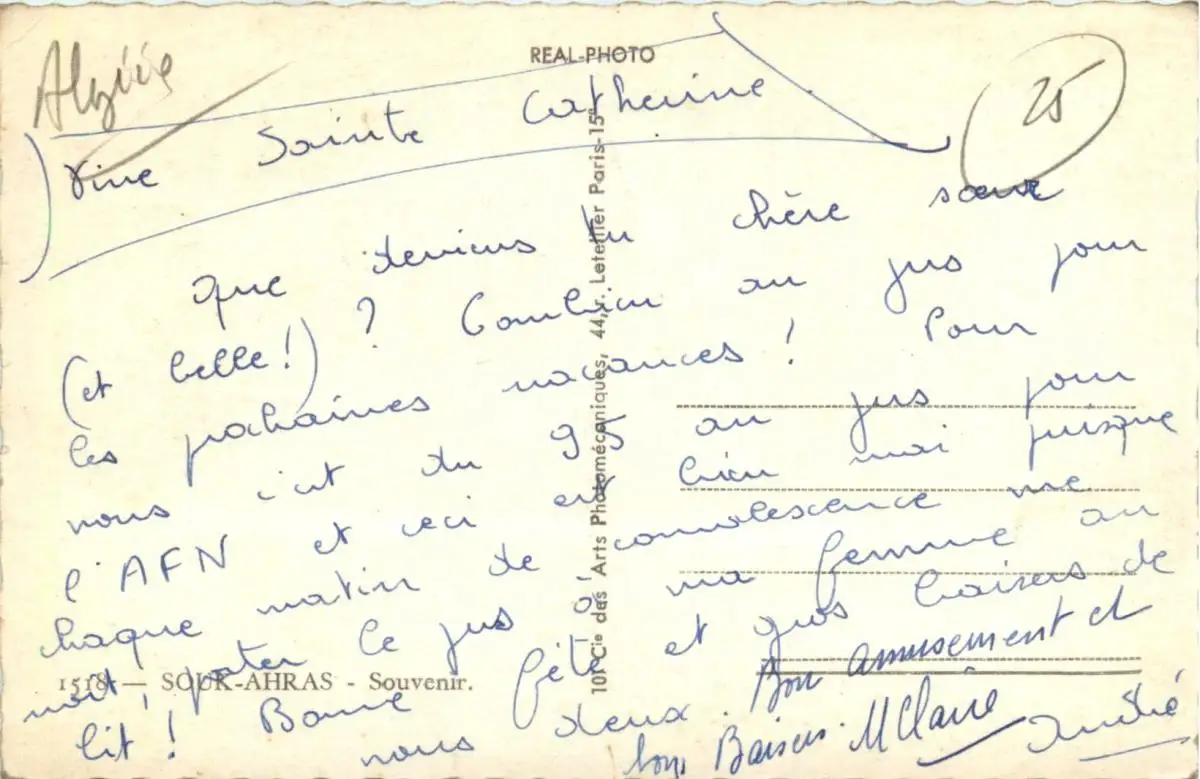 Algérie
REAL-PHOTO
25
Vive Sainte Catherine
Que deviens tu chère sœur
(et belle!) ? Combien au jus pour
les prochaines vacances ! Pour
nous c'est du 95 au jus pour
l'AFN et ceci est bien vrai puisque
chaque matin de convalescence me
voit, porter le jus à ma femme au
lit ! Bonne fête et gros baisers de
nous deux.
Bon amusement et
bons Baisers. MClaire
André
1518 — SOUK-AHRAS - Souvenir.
Cie des Arts Photomécaniques, 44, r. Letellier Paris-15e